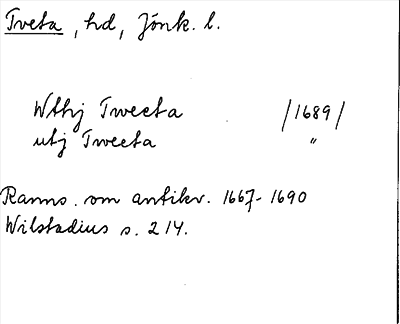 Tveta, hd, Jönk. l.
Wthj Tweeta /1689/
utj Tweeta "
Ranns. om antikv. 1667-1690
Wilstadius s. 214.